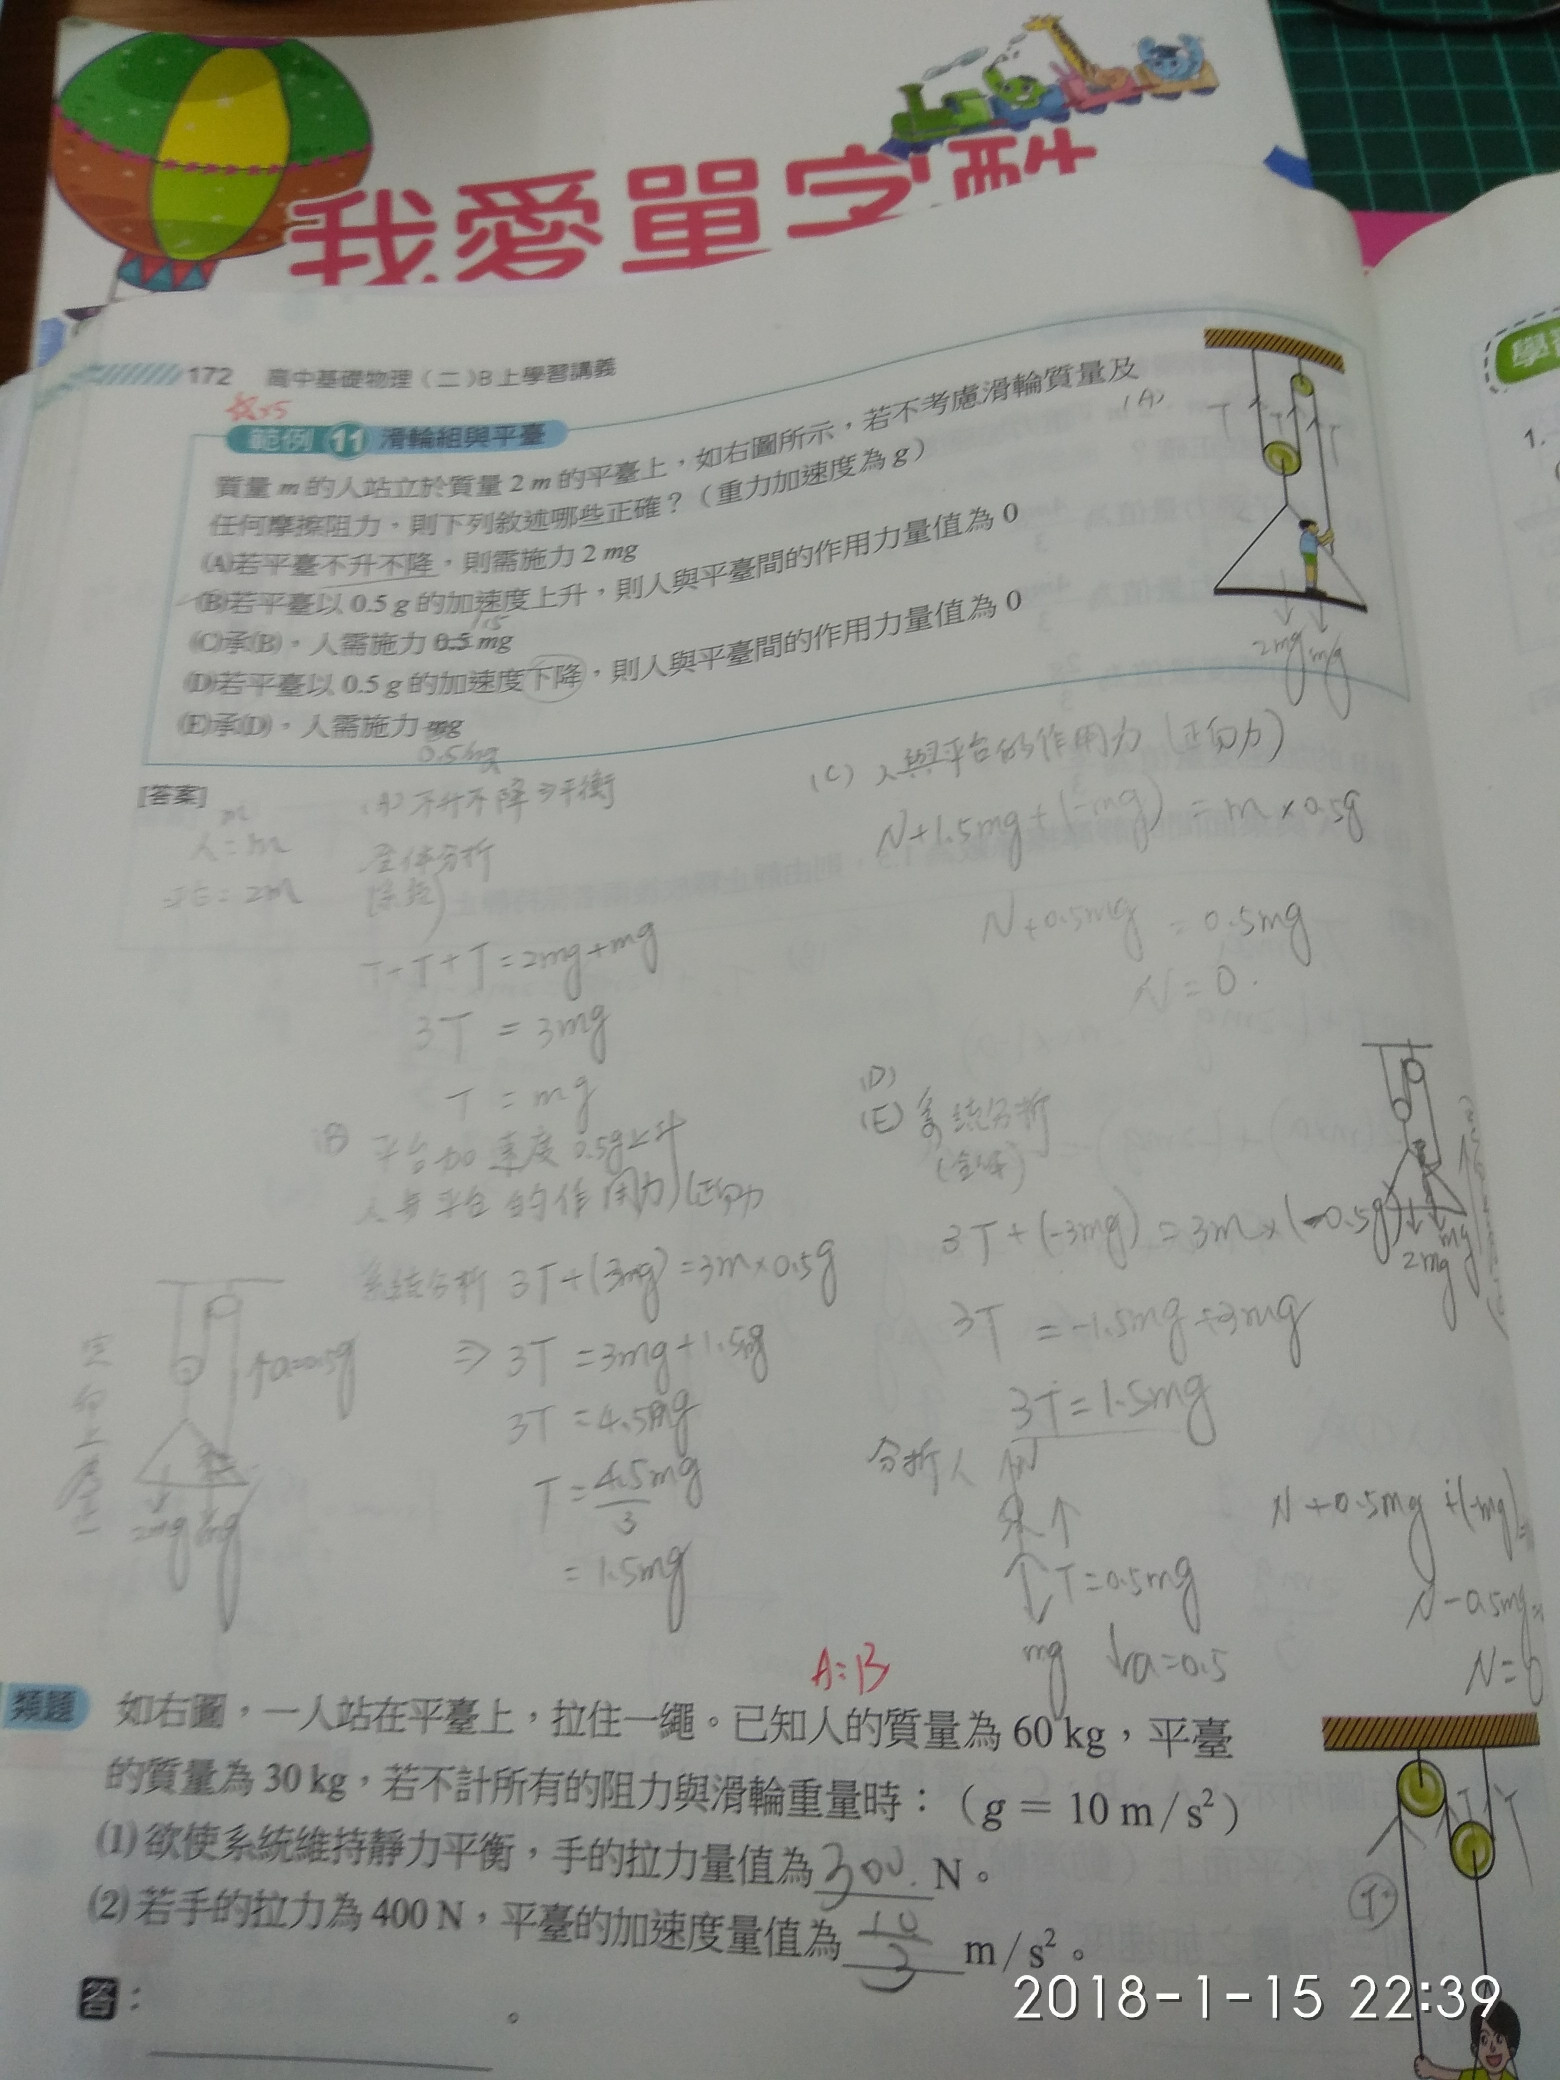 我愛單字
172 高中基礎物理(二)B上學習講義
範例 11 滑輪組與平臺
質量 m 的人站立於質量 2 m 的平臺上,如右圖所示,若不考慮滑輪質量及
任何摩擦阻力,則下列敘述哪些正確?(重力加速度為 g)
(A)若平臺不升不降,則需施力 2 mg
(B)若平臺以 0.5 g 的加速度上升,則人與平臺間的作用力量值為 0
(C)承(B),人需施力 0.5 mg
1.5
(D)若平臺以 0.5 g 的加速度下降,則人與平臺間的作用力量值為 0
(E)承(D),人需施力 mg
0.5mg
(A)
T T T T
2mg mg
[答案]
m
人=m
平台=2m
(A) 不升不降⇒平衡
全体分析
T+T+T=2mg+mg
3T = 3mg
T = mg
(B) 平台加速度 0.5g上升
人與平台的作用力(正向力)
系統分析 3T+(3mg)=3m×0.5g
⇒ 3T =3mg+1.5mg
3T =4.5mg
T = 4.5mg/3
= 1.5mg
↑a=0.5g
2mg mg
(C) 人與平台的作用力(正向力)
N+1.5mg+(-mg) = m×0.5g
N+0.5mg = 0.5mg
N=0.
(D)
(E) 系統分析
(全体)
3T+(-3mg)=3m×(-0.5g)
2mg mg
3T =-1.5mg+3mg
3T=1.5mg
分析人
N
T=0.5mg
mg ↓a=0.5
N+0.5mg+(-mg)=
N-0.5mg=
N=0
A=B
類題 如右圖,一人站在平臺上,拉住一繩。已知人的質量為 60 kg,平臺
的質量為 30 kg,若不計所有的阻力與滑輪重量時:(g = 10 m/s²)
(1)欲使系統維持靜力平衡,手的拉力量值為300.N。
(2)若手的拉力為 400 N,平臺的加速度量值為10/3 m/s²。
答: 。
T T T
2018-1-15 22:39
學習
1.